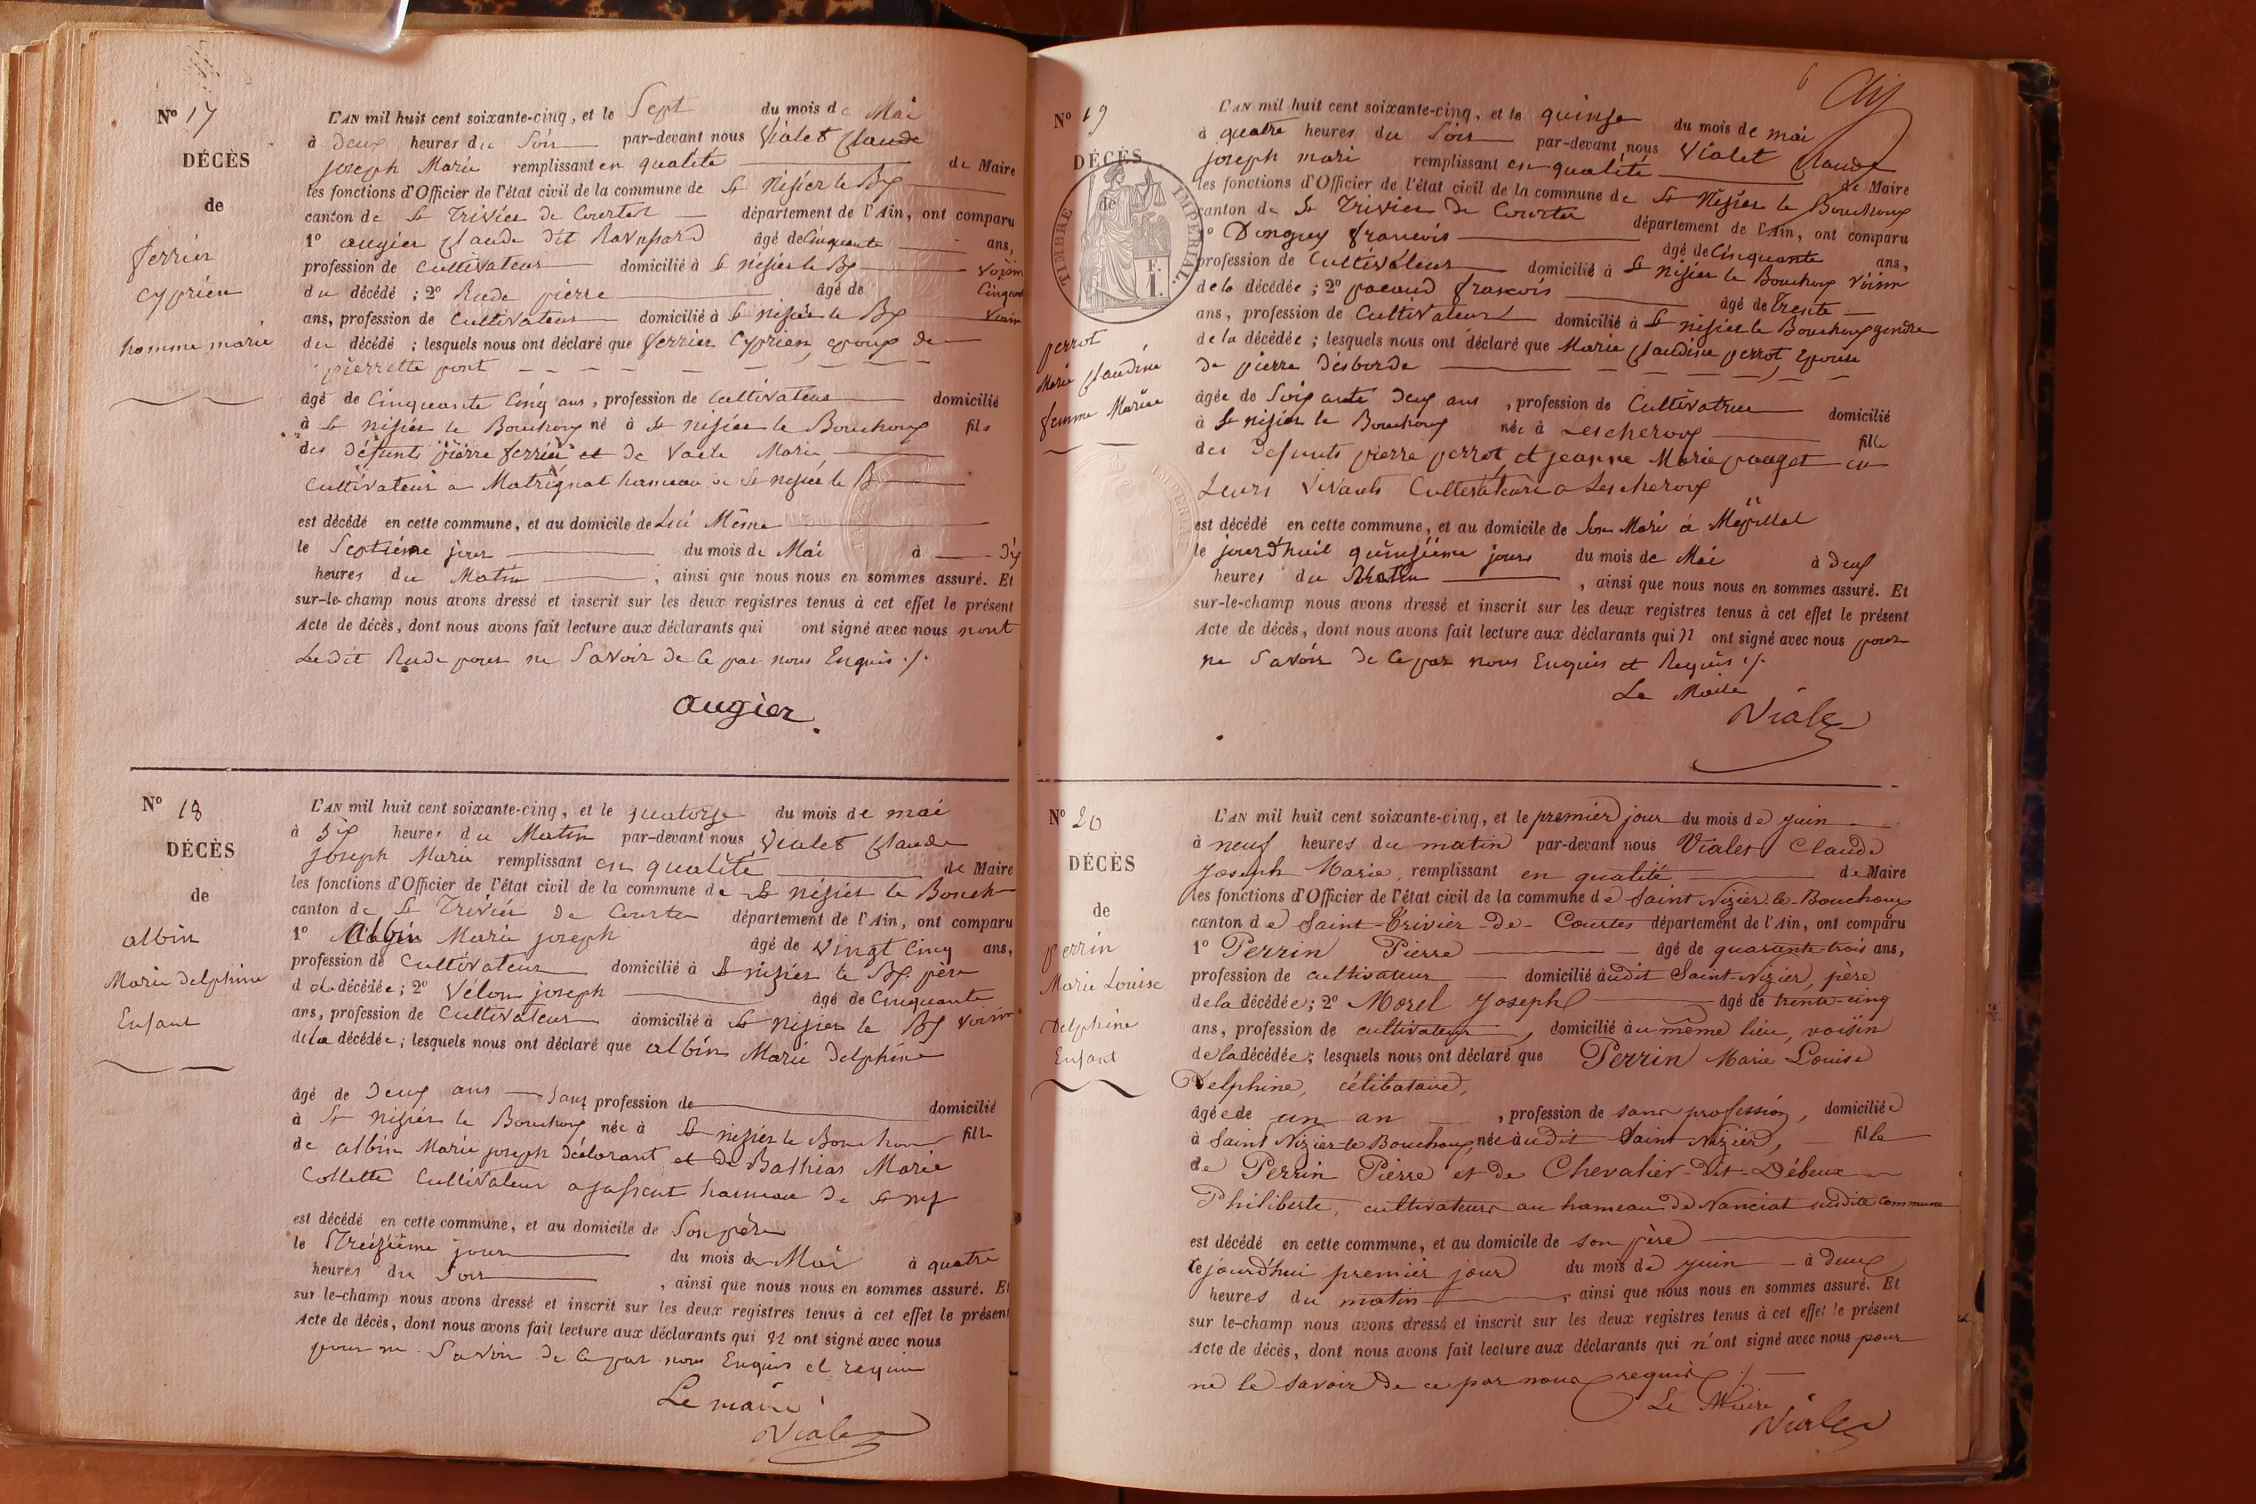 Nº 17
DÉCÈS
de
ferrier
cyprien
homme marié
L'AN mil huit cent soixante-cinq, et le Sept du mois de Mai
à deux heures du Soir par-devant nous Vialet Claude
joseph Marie remplissant en qualité de Maire
les fonctions d'Officier de l'état civil de la commune de St Nisier le Bx
canton de St Trivier de Courtes département de l'Ain, ont comparu
1º augier Claude dit Ravassard âgé de Cinquante ans,
profession de cultivateur domicilié à St nisier le Bx voisin
du décédé ; 2º Rude pierre âgé de Cinquante
ans, profession de Cultivateur domicilié à St nisier le Bx Voisin
du décédé ; lesquels nous ont déclaré que ferrier Cyprien, epoux de
pierrette pont
âgé de Cinquante Cinq ans, profession de Cultivateur domicilié
à St nisier le Bouchoux né à St nisier le Bouchoux fils
des défunts pierre ferrier et de Marie
Cultivateur a Matrignat hameau de St nisier le B
est décédé en cette commune, et au domicile de Lui Même
le Septième jour du mois de Mai à dix
heures du Matin ; ainsi que nous nous en sommes assuré. Et
sur-le-champ nous avons dressé et inscrit sur les deux registres tenus à cet effet le présent
Acte de décès, dont nous avons fait lecture aux déclarants qui ont signé avec nous nont
Ledit Rude pour ne Savoir de Ce par nous Enquis ./.
augier
Nº 18
DÉCÈS
de
albin
Marie Delphine
Enfant
L'AN mil huit cent soixante-cinq, et le quatorze du mois de mai
à Six heures du Matin par-devant nous Vialet Claude
Joseph Marie remplissant en qualité de Maire
les fonctions d'Officier de l'état civil de la commune de St nisier le Bouch
canton de St Trivier de Courtes département de l'Ain, ont comparu
1º Albin Marie joseph âgé de Vingt Cinq ans,
profession de Cultivateur domicilié à St nisier le Bx père
de la décédée ; 2º Vélon joseph âgé de Cinquante
ans, profession de Cultivateur domicilié à St nisier le Bx voisin
de la décédée ; lesquels nous ont déclaré que albin Marie Delphine
âgé de Deux ans Sans profession de domicilié
à St nisier le Bouchoux née à St nisier le Bouchoux fille
de albin Marie joseph déclarant et de Bathias Marie
Collette Cultivateur a hameau de St
est décédé en cette commune, et au domicile de Son père
le Treizième jour du mois de Mai à quatre
heures du Soir , ainsi que nous nous en sommes assuré. Et
sur le-champ nous avons dressé et inscrit sur les deux registres tenus à cet effet le présent
Acte de décès, dont nous avons fait lecture aux déclarants qui n ont signé avec nous
pour ne Savoir de Ce par nous Enquis et requis
Le maire
Vialet
6
Nº 19
DÉCÈS
de
TIMBRE IMPERIAL
perrot
Marie Claudine
femme Mariée
L'AN mil huit cent soixante-cinq, et le quinze du mois de mai
à quatre heures du Soir par-devant nous Vialet Claude
joseph mari remplissant en qualité de Maire
les fonctions d'Officier de l'état civil de la commune de St Nisier le Bouchoux
canton de St Trivier de Courtes département de l'Ain, ont comparu
1º Donguy francois âgé de Cinquante ans,
profession de Cultivateur domicilié à St nisier le Bouchoux Voisin
de la décédée ; 2º pacaud francois âgé de Trente
ans, profession de Cultivateur domicilié à St nisier le Bouchoux gendre
de la décédée ; lesquels nous ont déclaré que Marie Claudine perrot, Epouse
de pierre Désborde
âgée de Soixante Deux ans , profession de Cultivatrice domicilié
à St nisier le Bouchoux née à Lescheroux fille
des Défunts pierre perrot, et jeanne Marie pauget en
Leurs Vivants Cultivateurs a Lescheroux
est décédé en cette commune, et au domicile de Son Mari à Mépillat
le jourd'huit quinzième jour du mois de Mai à deux
heures du Matin , ainsi que nous nous en sommes assuré. Et
sur-le-champ nous avons dressé et inscrit sur les deux registres tenus à cet effet le présent
Acte de décès, dont nous avons fait lecture aux déclarants qui n ont signé avec nous pour
ne Savoir de Ce par nous Enquis et Requis ./.
Le Maire
Vialet
Nº 20
DÉCÈS
de
perrin
Marie Louise
Delphine
Enfant
L'AN mil huit cent soixante-cinq, et le premier jour du mois de juin
à neuf heures du matin par-devant nous Vialet Claude
Joseph Marie, remplissant en qualité de Maire
les fonctions d'Officier de l'état civil de la commune de Saint Nizier-le-Bouchoux
canton de Saint-Trivier-De-Courtes département de l'Ain, ont comparu
1º Perrin Pierre âgé de quarante-trois ans,
profession de cultivateur domicilié àudit Saint-Nizier, père
de la décédée ; 2º Morel Joseph âgé de trente-cinq
ans, profession de cultivateur, domicilié àu même lieu, voisin
de la décédée ; lesquels nous ont déclaré que Perrin Marie Louise
Delphine, célibataire,
âgée de un an , profession de sans profession, domiciliée
à Saint Nizier-le-Bouchoux, née àudit Saint Nizier, fille
de Perrin Pierre et de Chevalier-Dit-Débeux
Philiberte, cultivateurs au hameau De Nanciat susdite commune
est décédé en cette commune, et au domicile de son père
le jourd'hui premier jour du mois de juin à deux
heures du matin , ainsi que nous nous en sommes assuré. Et
sur le-champ nous avons dressé et inscrit sur les deux registres tenus à cet effet le présent
Acte de décès, dont nous avons fait lecture aux déclarants qui n'ont signé avec nous pour
ne le savoir de ce par nous requis ./.
Le Maire
Vialet